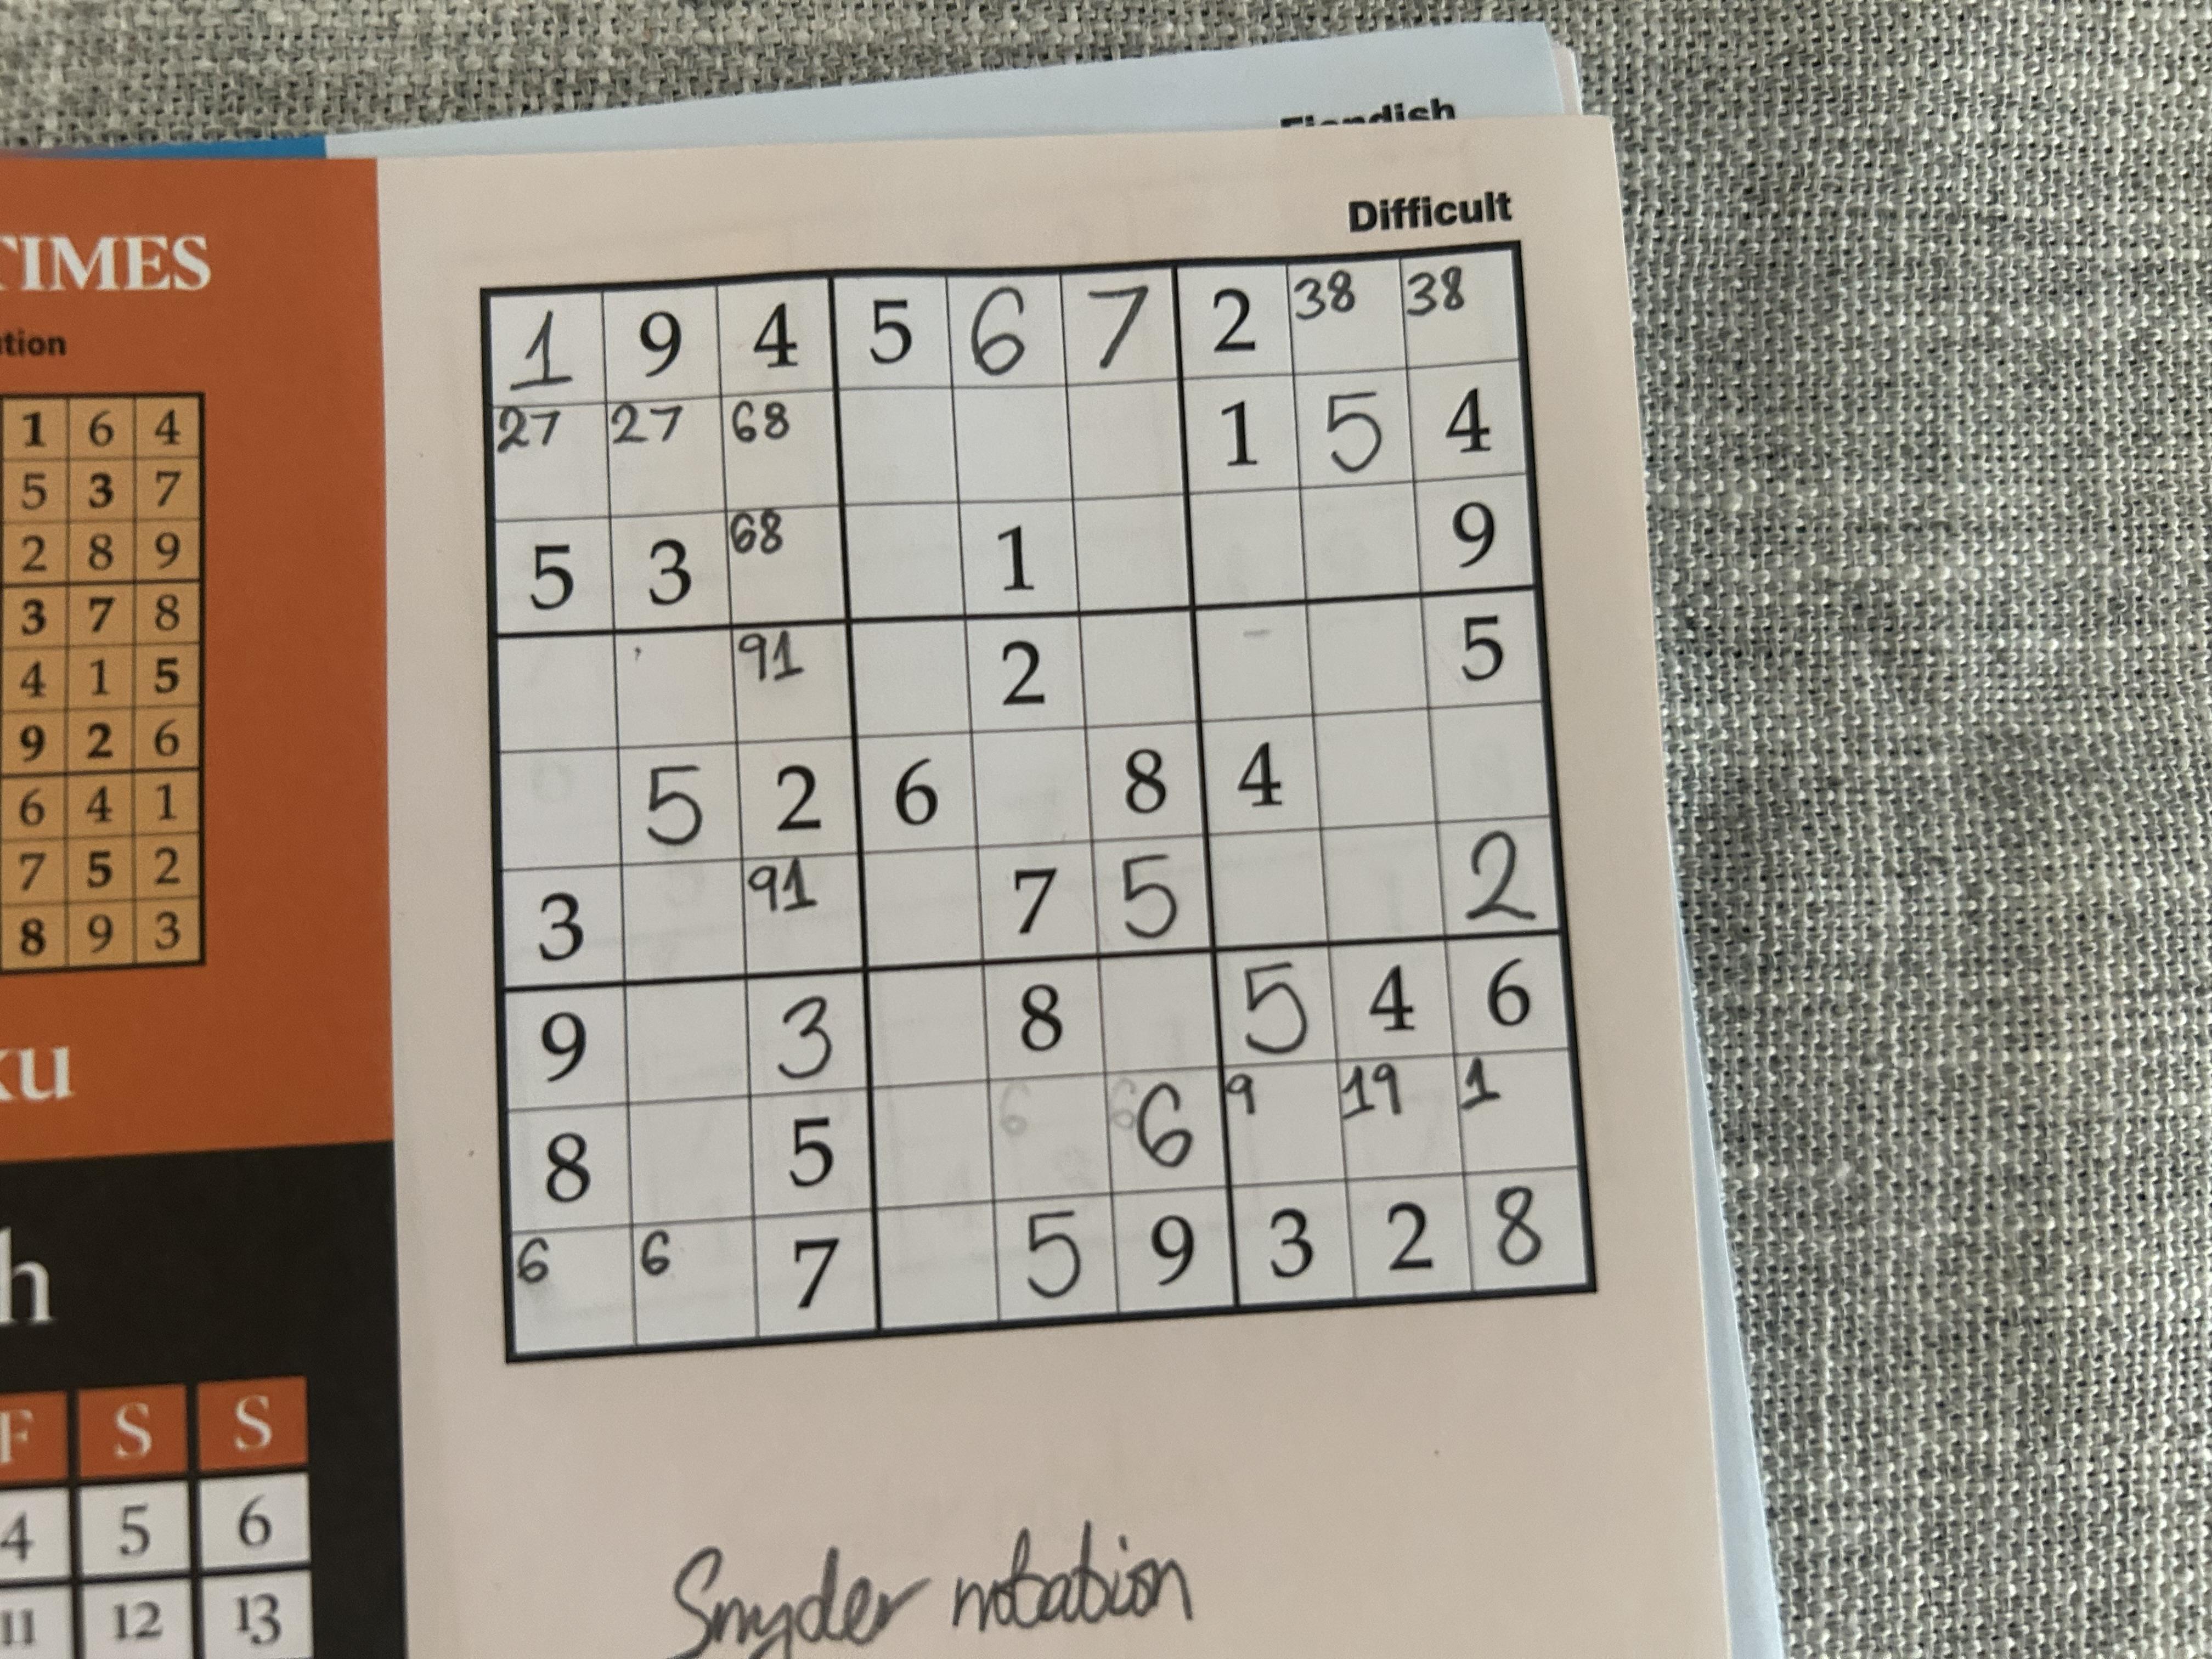 Fiendish
Difficult
TIMES
ution
1 6 4
5 3 7
2 8 9
3 7 8
4 1 5
9 2 6
6 4 1
7 5 2
8 9 3
ku
h
F S S
4 5 6
11 12 13
1 9 4 5 6 7 2 38 38
27 27 68 1 5 4
5 3 68 1 9
91 2 5
5 2 6 8 4
3 91 7 5 2
9 3 8 5 4 6
8 5 6 6 6 9 19 1
6 6 7 5 9 3 2 8
Snyder notation